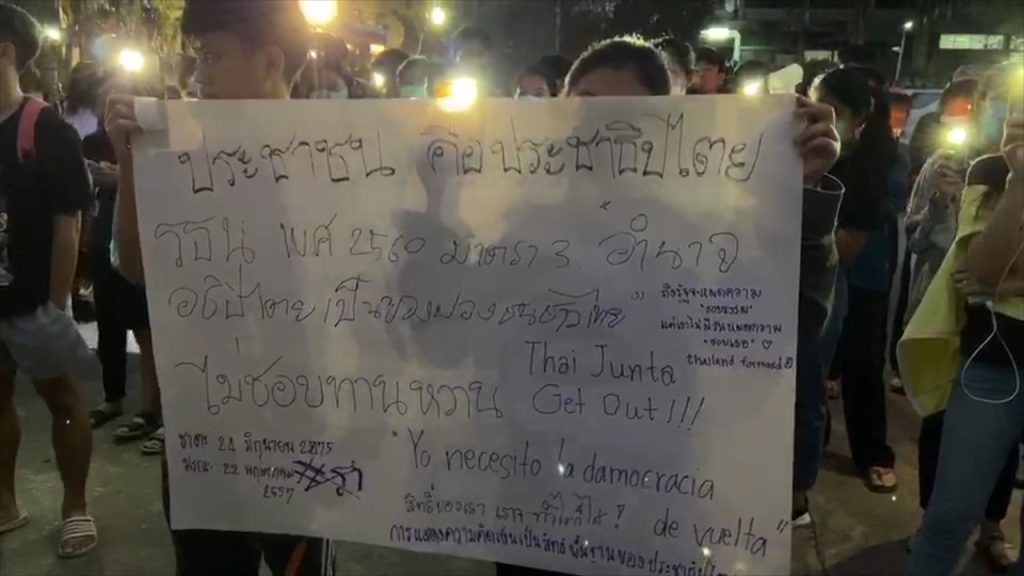 ประชาชน คือประชาธิปไตย
รธน พศ 2560 มาตรา 3 "อำนาจ
อธิปไตยเป็นของปวงชนชาวไทย"
ถึงรัฐจะหมดความ
"ชอบธรรม"
แต่เราไม่มีวันหมดความ
"ชอบเธอ" ♡
thailand forward
ไม่ชอบทานหวาน
Thai Junta
Get Out!!!
ชาตะ 24 มิถุนายน 2475
มรณะ 22 พฤษภาคม
2557
"Yo necesito la damocracia
de vuelta"
สิทธิ์ของเรา เราจะทำไรก็ได้!
การแสดงความคิดเห็นเป็นสิทธิ พื้นฐานของประชาธิปไตย